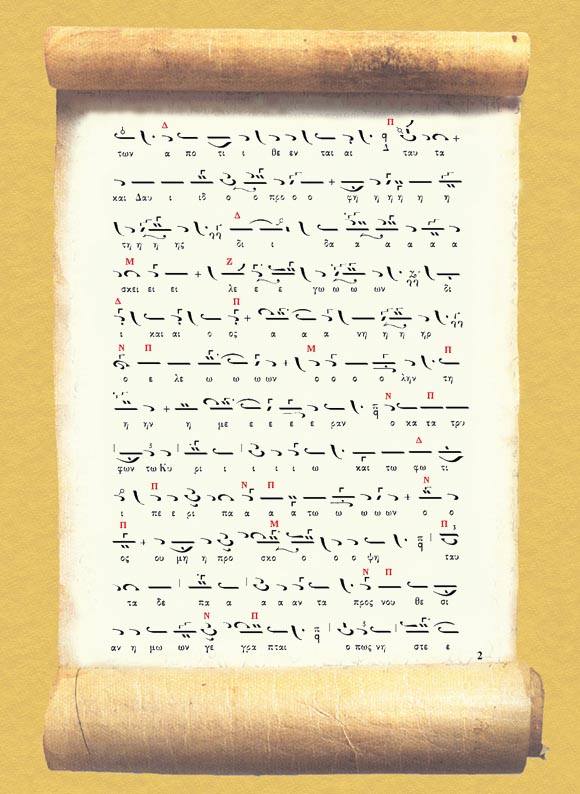 Δ Π
των α πο τι ι θε εν ται αι ταυ τα
και Δαυ ι ιδ ο ο προ ο ο φη η η η η η
Δ
τη η η ης δι ι δα α α α α α
Μ Ζ
σκει ει ει λε ε ε γω ω ω ων δι
Δ Π
ι και αι ο ος α α α νη η η ηρ
Ν Π Μ Π
ο ε λε ω ω ω ων ο ο ο ο λην τη
Ν Π
η ην η με ε ε ε ε ραν ο κα τα τρυ
Δ
φων τω Κυ ρι ι ι ι ω και τω φω τι
Π Ν Π Ν
ι πε ε ρι πα α α α τω ω ω ω ων ο ο
Π Μ Π
ος ου μη η προ σκο ο ο ο ψη ταυ
Ν Π
τα δε πα α α α αν τα προς νου θε σι
Ν Π
αν η μω ων γε γρα πται ο πως νη στε ε
2